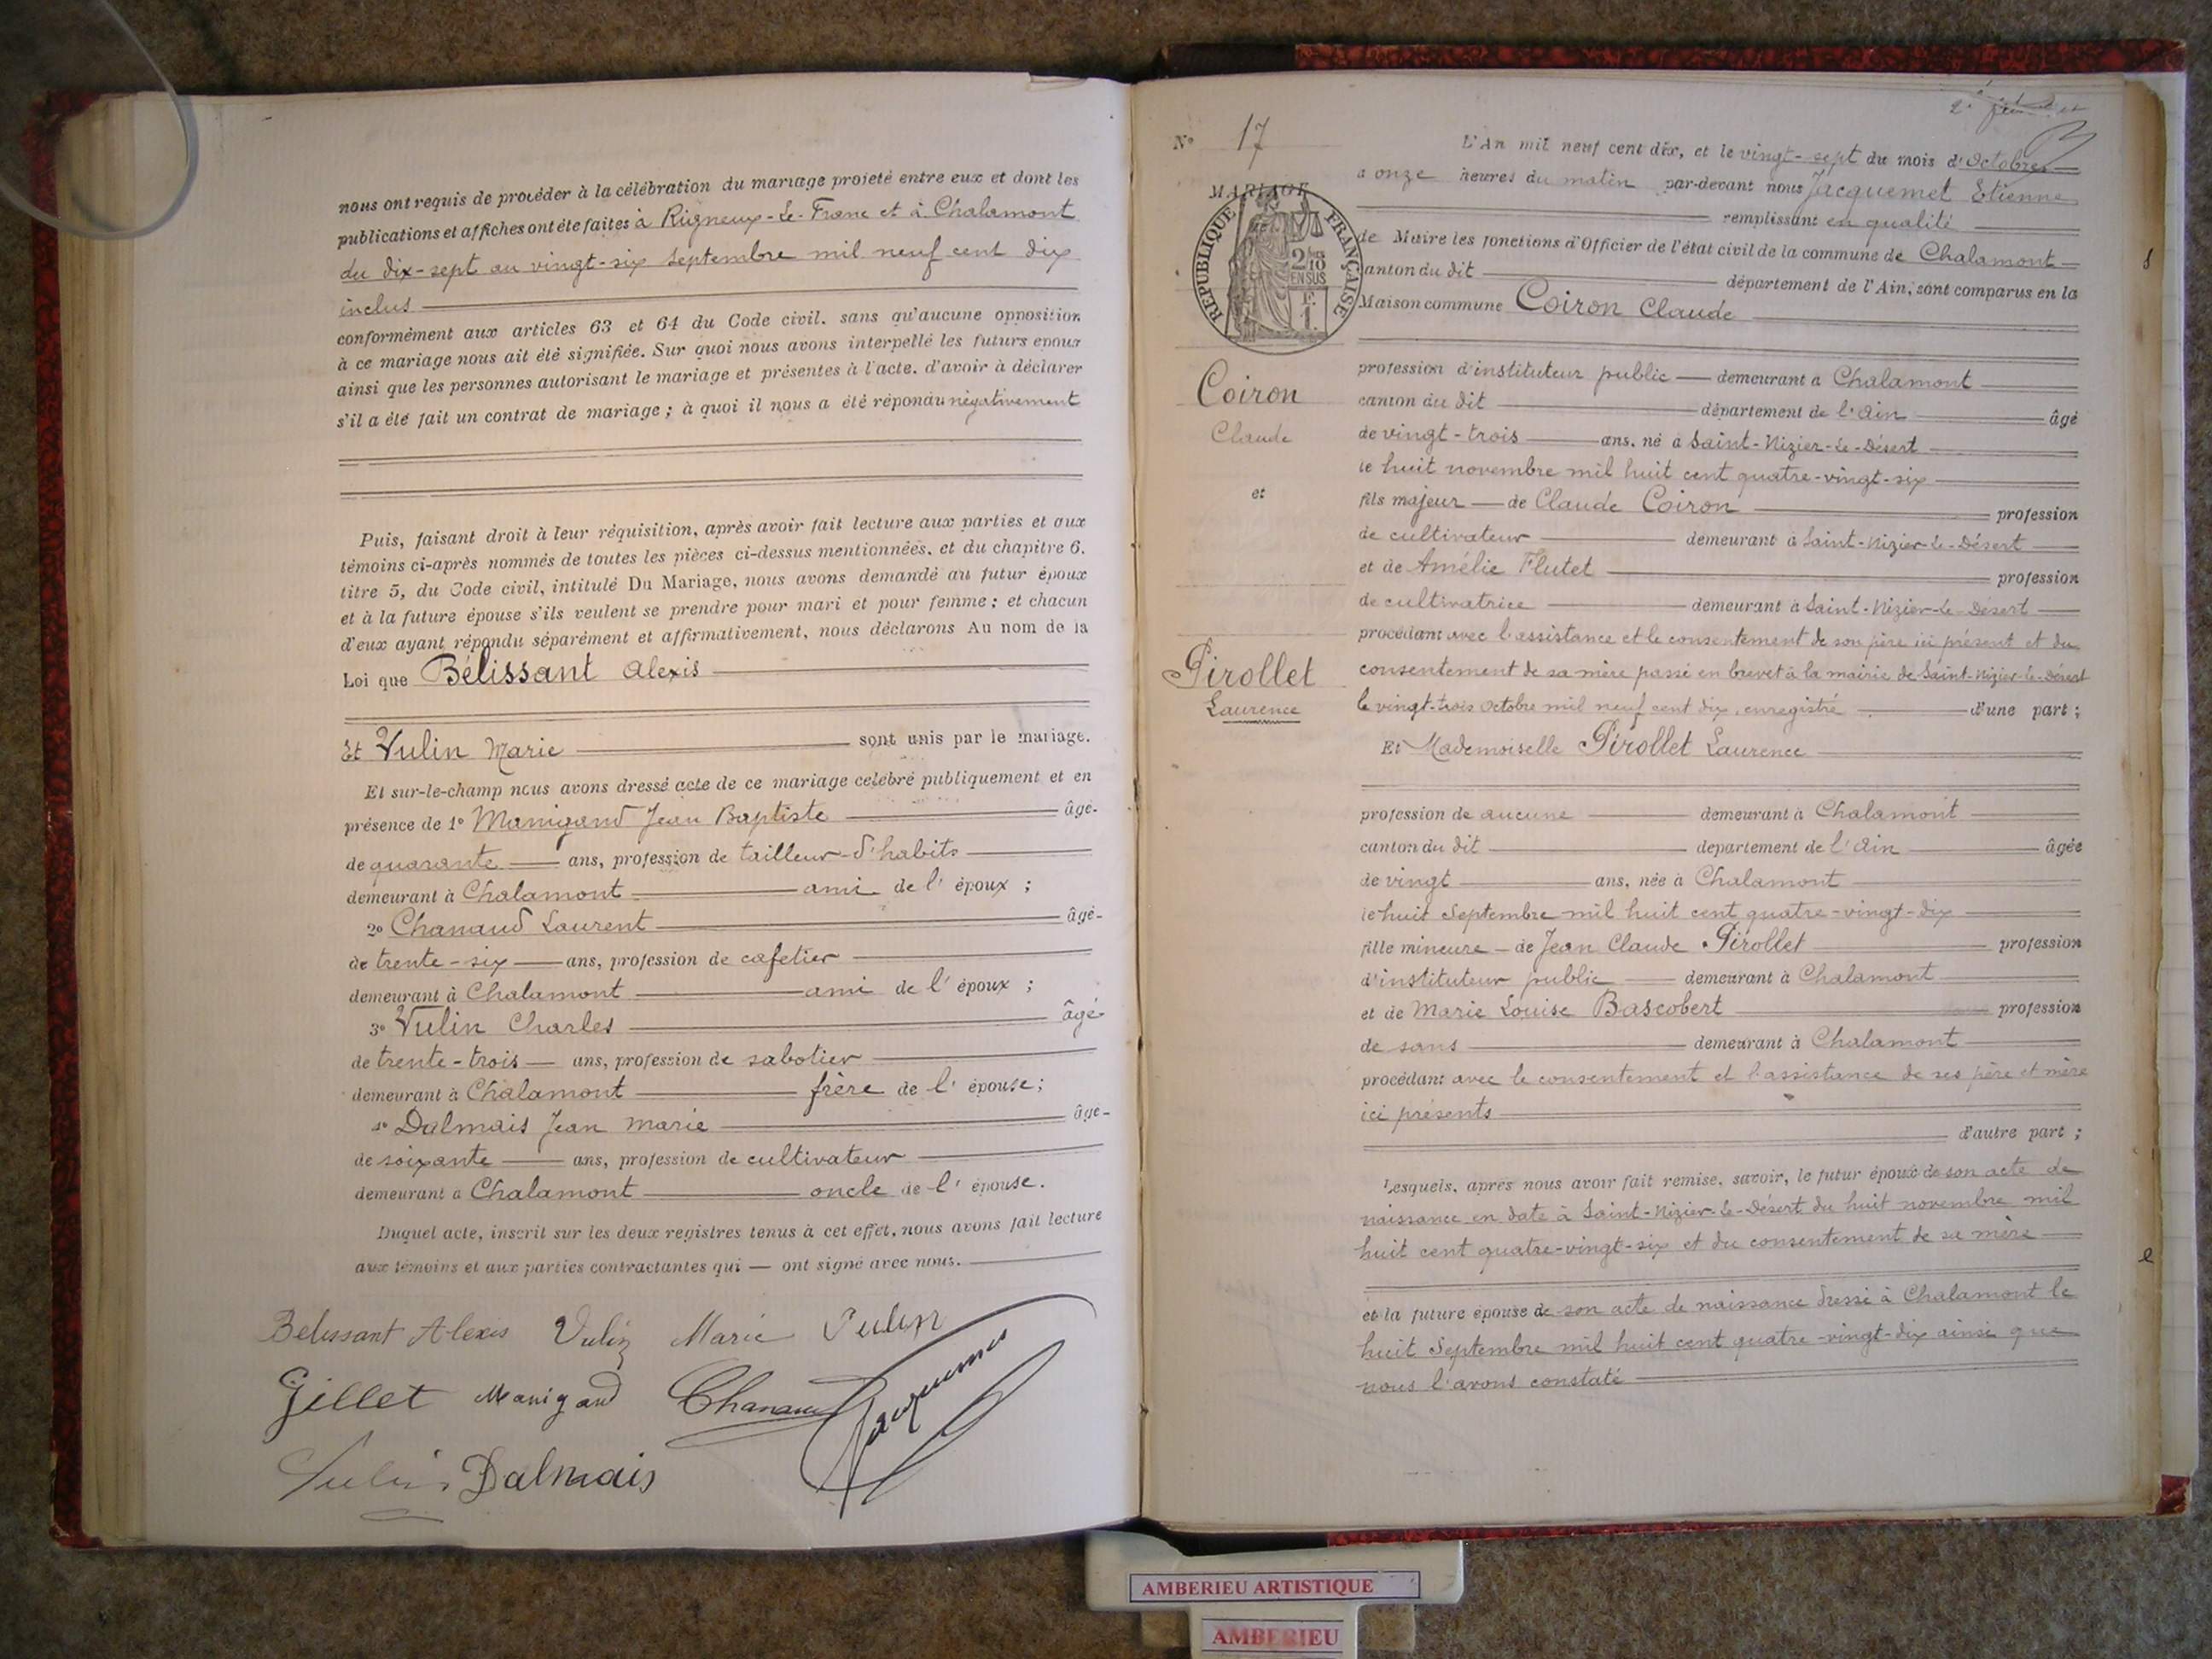 nous ont requis de procéder à la célébration du mariage projeté entre eux et dont les
publications et affiches ont été faites à Rigneux-le-Franc et à Chalamont
du dix-sept au vingt-six septembre mil neuf cent dix
inclus
conformément aux articles 63 et 64 du Code civil. sans qu'aucune opposition
à ce mariage nous ait été signifiée. Sur quoi nous avons interpellé les futurs epoux
ainsi que les personnes autorisant le mariage et présentes à l'acte. d'avoir à déclarer
s'il a été fait un contrat de mariage ; à quoi il nous a été répondu négativement
Puis, faisant droit à leur réquisition, après avoir fait lecture aux parties et aux
témoins ci-après nommés de toutes les pièces ci-dessus mentionnées. et du chapitre 6.
titre 5, du Code civil, intitulé Du Mariage, nous avons demandé au futur époux
et à la future épouse s'ils veulent se prendre pour mari et pour femme ; et chacun
d'eux ayant répondu séparément et affirmativement, nous déclarons Au nom de la
Loi que Bélissant Alexis
Et Vulin Marie sont unis par le mariage.
Et sur-le-champ nous avons dressé acte de ce mariage celebré publiquement et en
présence de 1º Manigand Jean Baptiste âgé-
de quarante ans, profession de tailleur-d'habits
demeurant à Chalamont ami de l' époux ;
2º Chanaud Laurent âgé-
de trente-six ans, profession de cafetier
demeurant à Chalamont ami de l' époux ;
3º Vulin Charles âgé-
de trente-trois ans, profession de sabotier
demeurant à Chalamont frère de l' épouse ;
4º Dalmais Jean Marie âgé-
de soixante ans, profession de cultivateur
demeurant à Chalamont oncle de l' épouse.
Duquel acte, inscrit sur les deux registres tenus à cet effet, nous avons fait lecture
aux témoins et aux parties contractantes qui ont signé avec nous.
Belissant Alexis Vulin Marie Vulin
Gillet Manigand Chanaud Jacquemet
Vulin Dalmais
Nº 17
MARIAGE
REPUBLIQUE FRANÇAISE
2/10 EN SUS
F. 1.
Coiron
Claude
et
Pirollet
Laurence
L'An mil neuf cent dix, et le vingt-sept du mois d'Octobre
a onze heures du matin par-devant nous Jacquemet Etienne
remplissant en qualité
de Maire les fonctions d'Officier de l'état civil de la commune de Chalamont
canton du dit département de l'Ain, sont comparus en la
Maison commune Coiron Claude
profession d'instituteur public demeurant a Chalamont
canton du dit département de l'Ain âgé
de vingt-trois ans, né à Saint-Nizier-le-Désert
le huit novembre mil huit cent quatre-vingt-six
fils majeur de Claude Coiron profession
de cultivateur demeurant à Saint-Nizier-le-Désert
et de Amélie Flutet profession
de cultivatrice demeurant à Saint-Nizier-le-Désert
procédant avec l'assistance et le consentement de son père ici présent et du
consentement de sa mère passé en brevet à la mairie de Saint-Nizier-le-Désert
le vingt-trois Octobre mil neuf cent dix, enregistré d'une part ;
Et Mademoiselle Pirollet Laurence
profession de aucune demeurant à Chalamont
canton du dit departement de l'Ain âgée
de vingt ans, née à Chalamont
le huit Septembre mil huit cent quatre-vingt-dix
fille mineure de Jean Claude Pirollet profession
d'instituteur public demeurant à Chalamont
et de Marie Louise Bascobert profession
de sans demeurant à Chalamont
procédant avec le consentement et l'assistance de ses père et mère
ici présents
d'autre part ;
Lesquels, après nous avoir fait remise, savoir, le futur époux de son acte de
naissance en date à Saint-Nizier-le-Désert du huit novembre mil
huit cent quatre-vingt-six et du consentement de sa mère
et la future épouse de son acte de naissance dressé à Chalamont le
huit Septembre mil huit cent quatre-vingt-dix ainsi que
nous l'avons constaté
AMBERIEU ARTISTIQUE
AMBERIEU